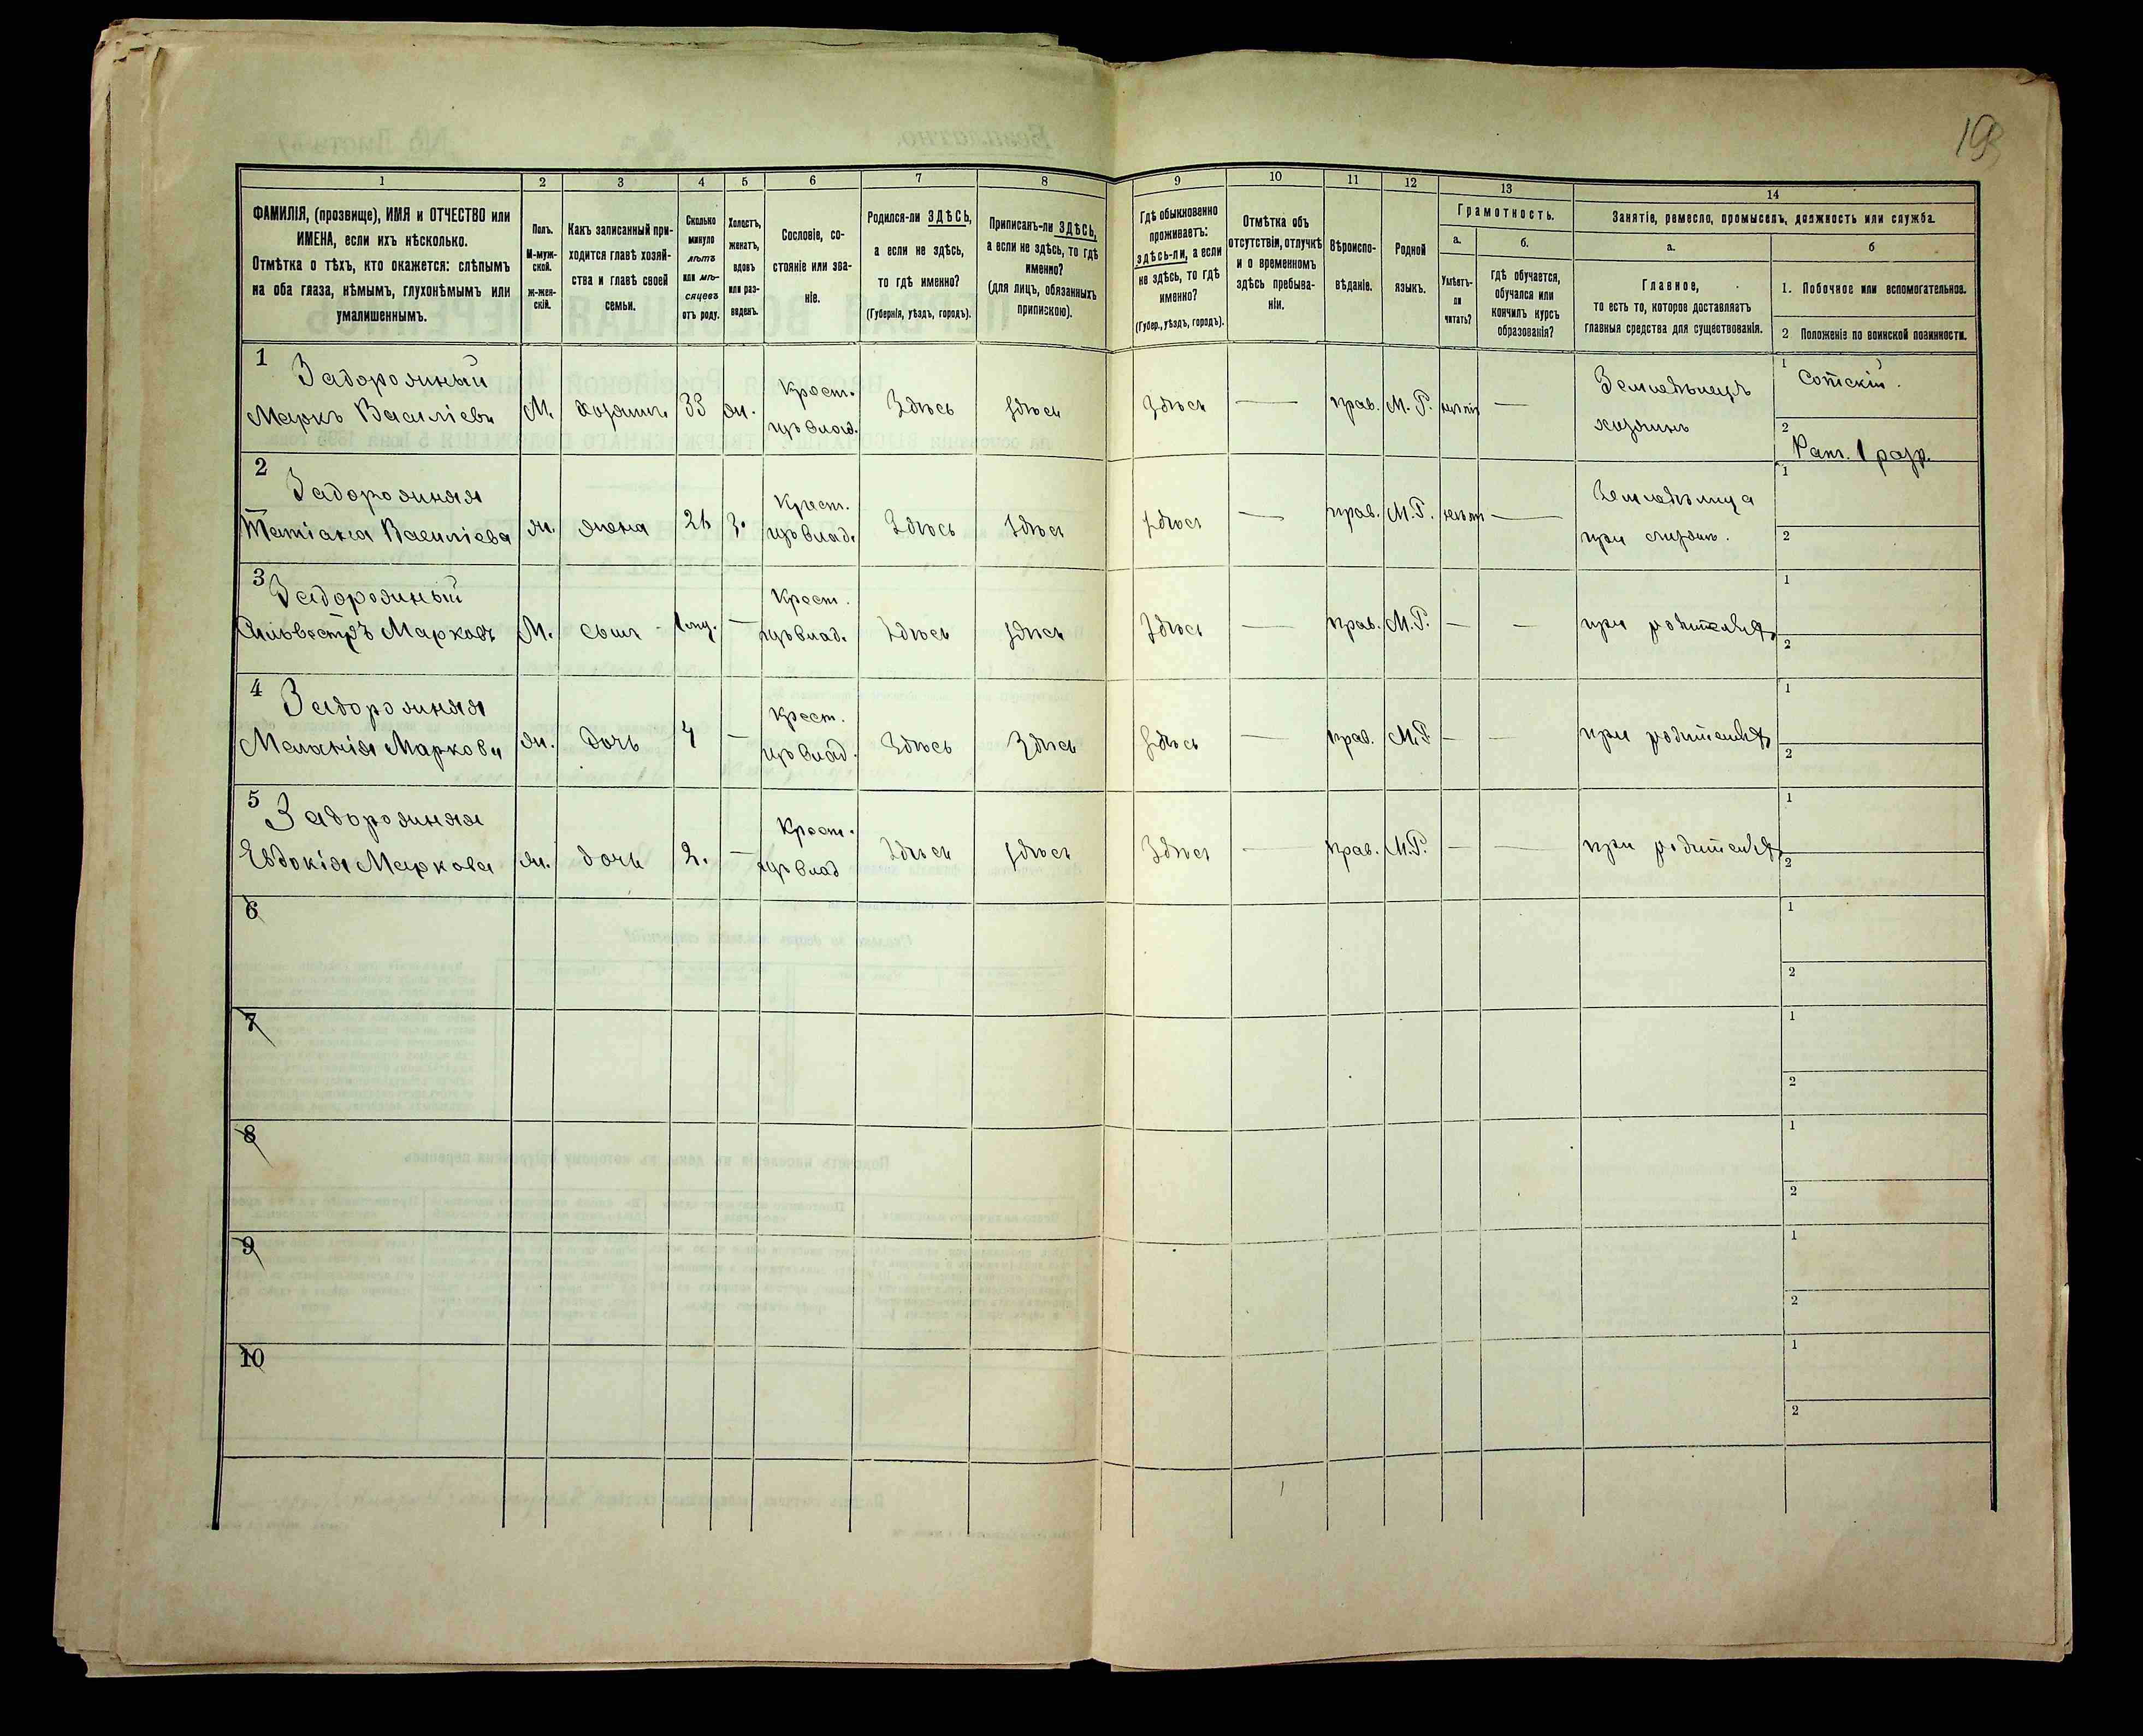 193
1 2 3 4 5 6 7 8 9 10 11 12 13 14
ФАМИЛІЯ, (прозвище), ИМЯ и ОТЧЕСТВО или
ИМЕНА, если ихъ нѣсколько.
Отмѣтка о тѣхъ, кто окажется: слѣпымъ
на оба глаза, нѣмымъ, глухонѣмымъ или
умалишеннымъ.
Полъ.
М-муж-
ской.
ж-жен-
скій.
Какъ записанный при-
ходится главѣ хозяй-
ства и главѣ своей
семьи.
Сколько
минуло
лѣтъ
или мѣ-
сяцевъ
отъ роду.
Холостъ,
женатъ,
вдовъ
или раз-
веденъ.
Сословіе, со-
стояніе или зва-
ніе.
Родился-ли ЗДѢСЬ,
а если не здѣсь,
то гдѣ именно?
(Губернія, уѣздъ, городъ).
Приписанъ-ли ЗДѢСЬ,
а если не здѣсь, то гдѣ
именно?
(для лицъ, обязанныхъ
припискою).
Гдѣ обыкновенно
проживаетъ:
здѣсь-ли, а если
не здѣсь, то гдѣ
именно?
(Губер., уѣздъ, городъ).
Отмѣтка объ
отсутствіи, отлучкѣ
и о временномъ
здѣсь пребыва-
ніи.
Вѣроиспо-
вѣданіе.
Родной
языкъ.
Грамотность.
а.
Умѣетъ-
ли
читать?
б.
гдѣ обучается,
обучался или
кончилъ курсъ
образованія?
Занятіе, ремесло, промыселъ, должность или служба.
а.
Главное,
то есть то, которое доставляетъ
главныя средства для существованія.
б
1. Побочное или вспомогательное.
2 Положеніе по воинской повинности.
1 Задорожный Крест. Земледѣлецъ 1 Сотскій.
Маркъ Василіевъ М. хозяинъ 33 ж. Здѣсь Здѣсь Здѣсь — прав. М. Р. — хозяинъ 2 Рат. 1 разр.
2 Задорожняя Крест. 1
Татіана Василіева ж. жена 26 З. Здѣсь Здѣсь Здѣсь — прав. М.Р. — при 2
3 Задорожный Крест. 1
Сильвестръ Марковъ М. сынъ — Здѣсь Здѣсь Здѣсь — прав. М.Р. — — при родителяхъ 2
4 Задорожняя Крест. 1
Меланія Маркова ж. дочь 4 — Здѣсь Здѣсь Здѣсь — прав. М.Р. — — при родителяхъ 2
5 Задорожняя Крест. 1
Евдокія Маркова ж. дочь 2. — Здѣсь Здѣсь Здѣсь — прав. М.Р. — — при родителяхъ 2
6 1
2
7 1
2
8 1
2
9 1
2
10 1
2